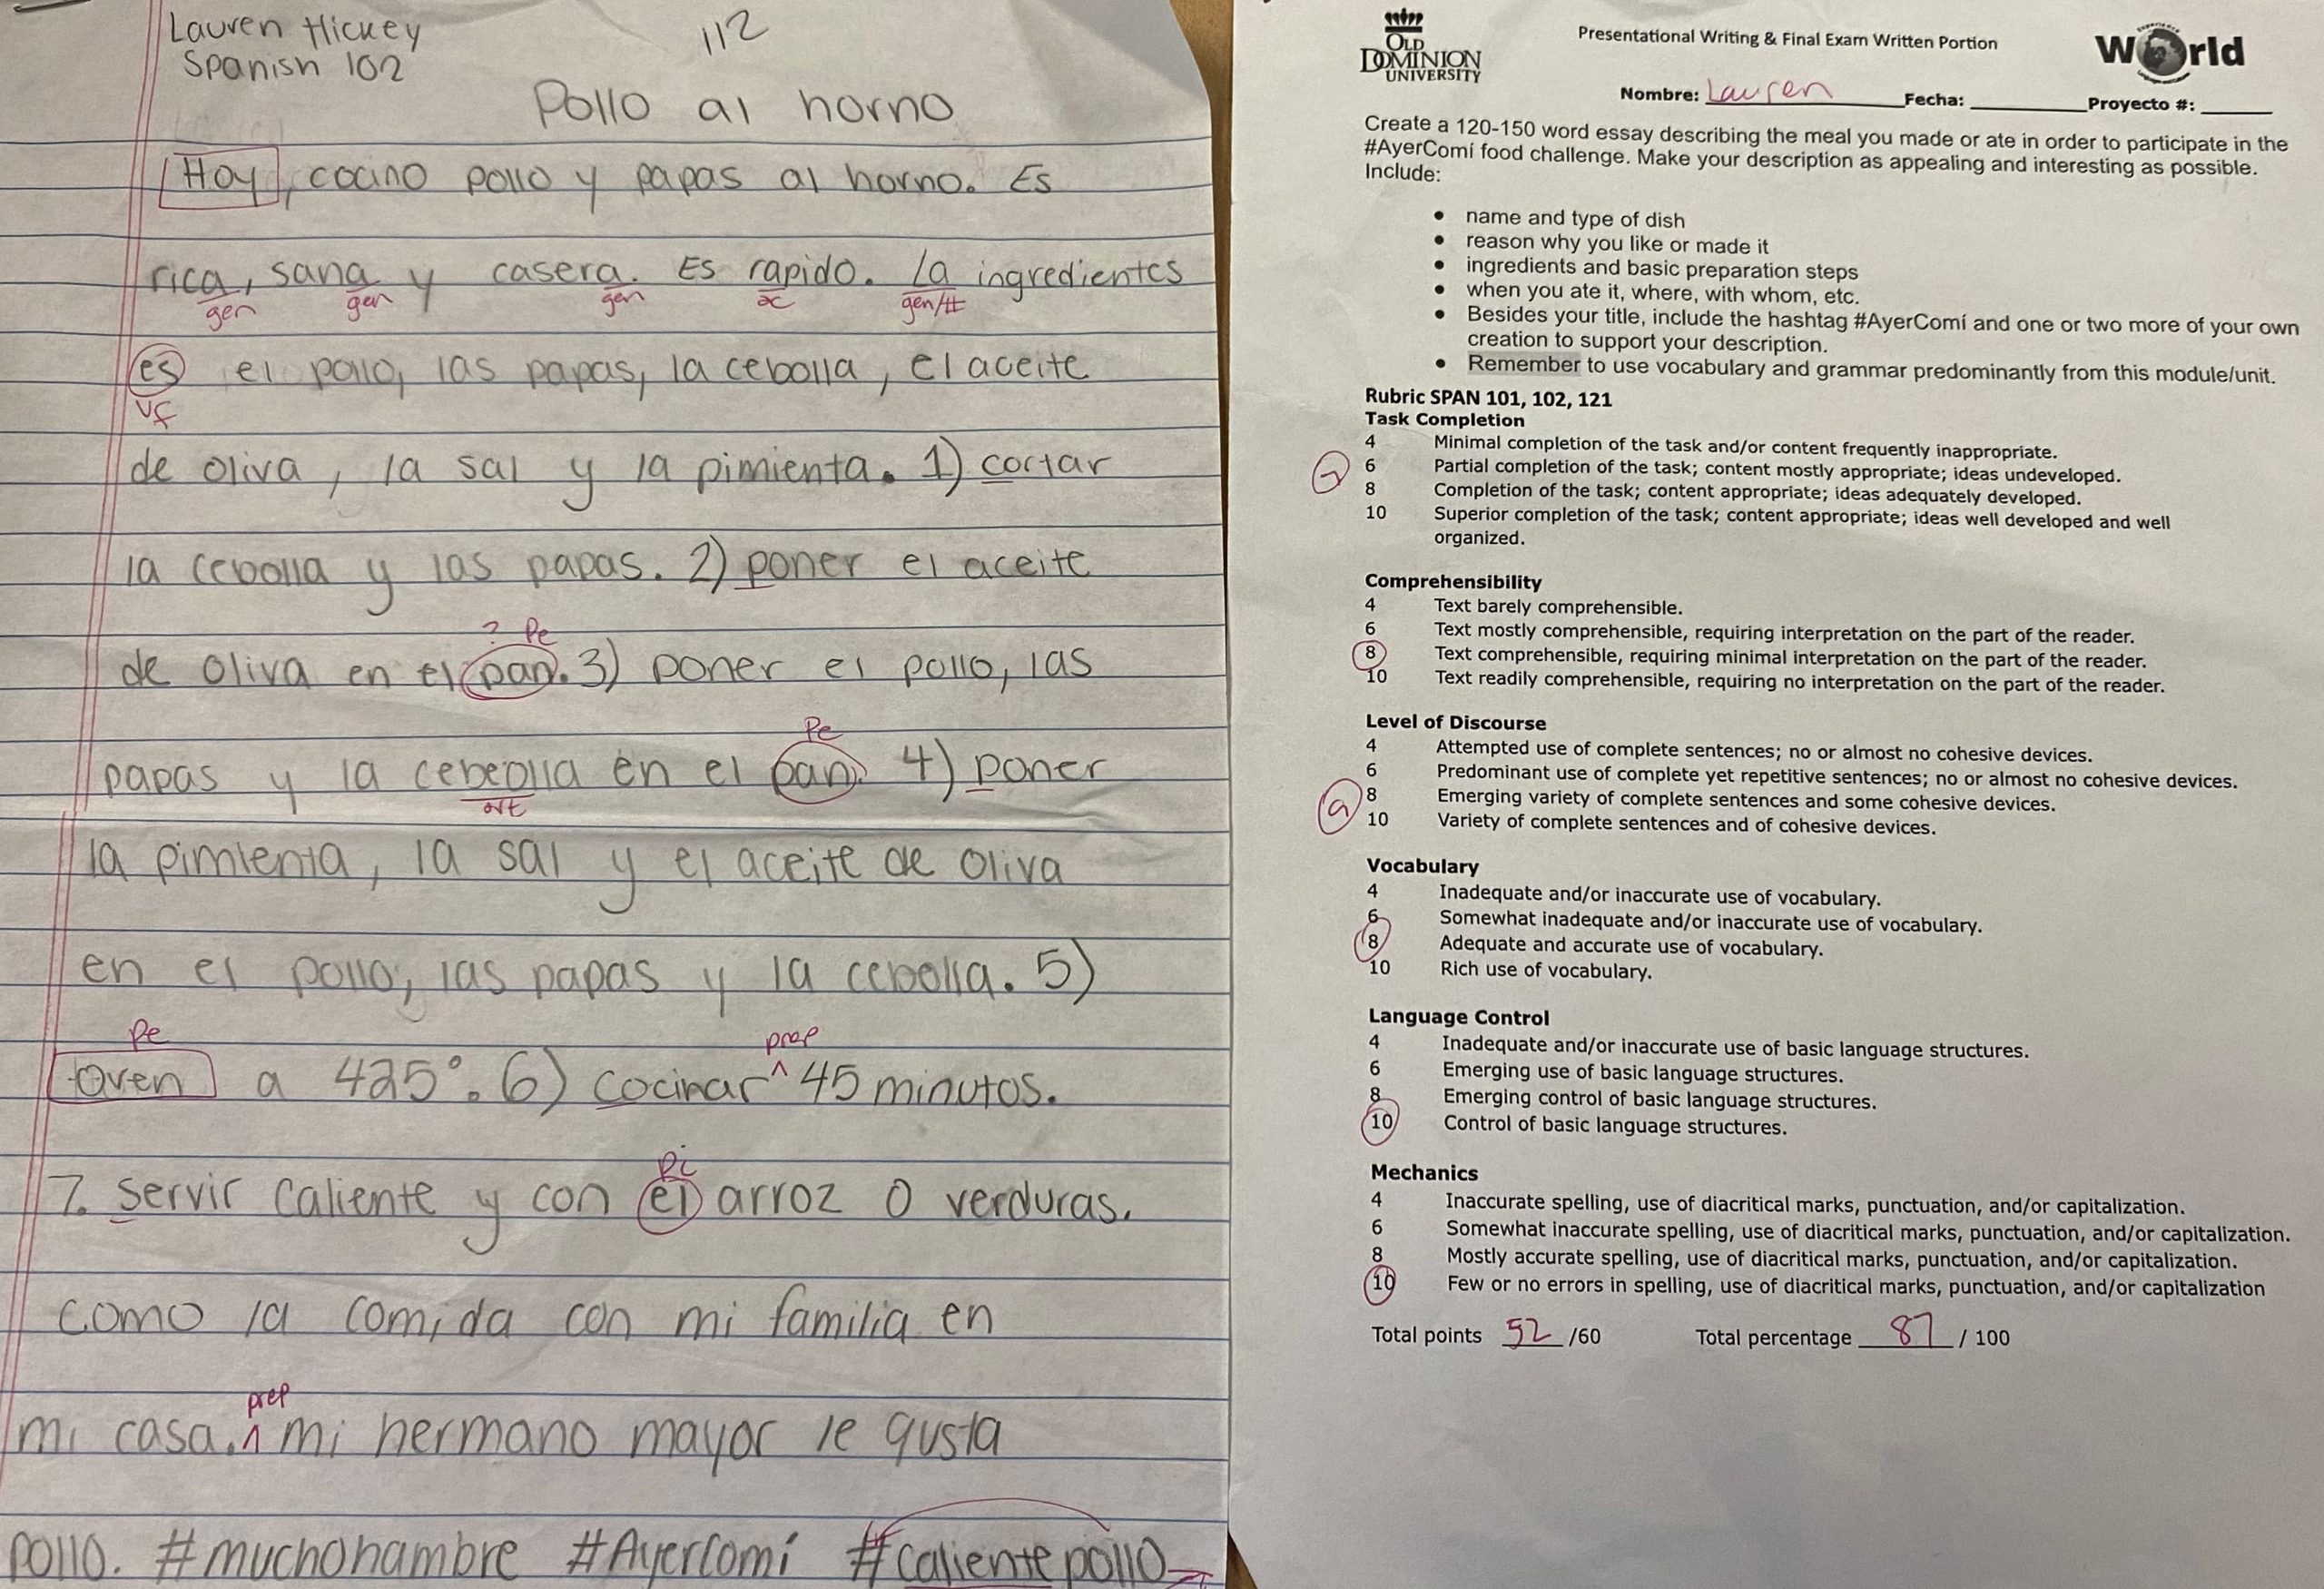 Lauren Hickey
Spanish 102
112
Pollo al horno
Hoy, cocino pollo y papas al horno. Es
rica, sana y casera. Es rapido. La ingredientes
gen gen gen ac gen/#
es el pollo, las papas, la cebolla, el aceite
vf
de oliva, la sal y la pimienta. 1) cortar
la cebolla y las papas. 2) poner el aceite
? Pe
de oliva en el pan. 3) poner el pollo, las
Pe
papas y la cebeolla en el pan. 4) poner
ort
la pimienta, la sal y el aceite de oliva
en el pollo, las papas y la cebolla. 5)
Pe prep
oven a 425°. 6) cocinar ^ 45 minutos.
7. servir caliente y con el arroz o verduras.
como la comida con mi familia en
prep
mi casa. ^ mi hermano mayor le gusta
pollo. #muchohambre #AyerComí #calientepollo
OLD
DOMINION
UNIVERSITY
Presentational Writing & Final Exam Written Portion
World
Nombre: Lauren Fecha: ________ Proyecto #: ______
Create a 120-150 word essay describing the meal you made or ate in order to participate in the
#AyerComí food challenge. Make your description as appealing and interesting as possible.
Include:
• name and type of dish
• reason why you like or made it
• ingredients and basic preparation steps
• when you ate it, where, with whom, etc.
• Besides your title, include the hashtag #AyerComí and one or two more of your own
creation to support your description.
• Remember to use vocabulary and grammar predominantly from this module/unit.
Rubric SPAN 101, 102, 121
Task Completion
4 Minimal completion of the task and/or content frequently inappropriate.
7
6 Partial completion of the task; content mostly appropriate; ideas undeveloped.
8 Completion of the task; content appropriate; ideas adequately developed.
10 Superior completion of the task; content appropriate; ideas well developed and well
organized.
Comprehensibility
4 Text barely comprehensible.
6 Text mostly comprehensible, requiring interpretation on the part of the reader.
8 Text comprehensible, requiring minimal interpretation on the part of the reader.
10 Text readily comprehensible, requiring no interpretation on the part of the reader.
Level of Discourse
4 Attempted use of complete sentences; no or almost no cohesive devices.
6 Predominant use of complete yet repetitive sentences; no or almost no cohesive devices.
8 Emerging variety of complete sentences and some cohesive devices.
9
10 Variety of complete sentences and of cohesive devices.
Vocabulary
4 Inadequate and/or inaccurate use of vocabulary.
6 Somewhat inadequate and/or inaccurate use of vocabulary.
8 Adequate and accurate use of vocabulary.
10 Rich use of vocabulary.
Language Control
4 Inadequate and/or inaccurate use of basic language structures.
6 Emerging use of basic language structures.
8 Emerging control of basic language structures.
10 Control of basic language structures.
Mechanics
4 Inaccurate spelling, use of diacritical marks, punctuation, and/or capitalization.
6 Somewhat inaccurate spelling, use of diacritical marks, punctuation, and/or capitalization.
8 Mostly accurate spelling, use of diacritical marks, punctuation, and/or capitalization.
10 Few or no errors in spelling, use of diacritical marks, punctuation, and/or capitalization
Total points 52 /60 Total percentage 87 / 100